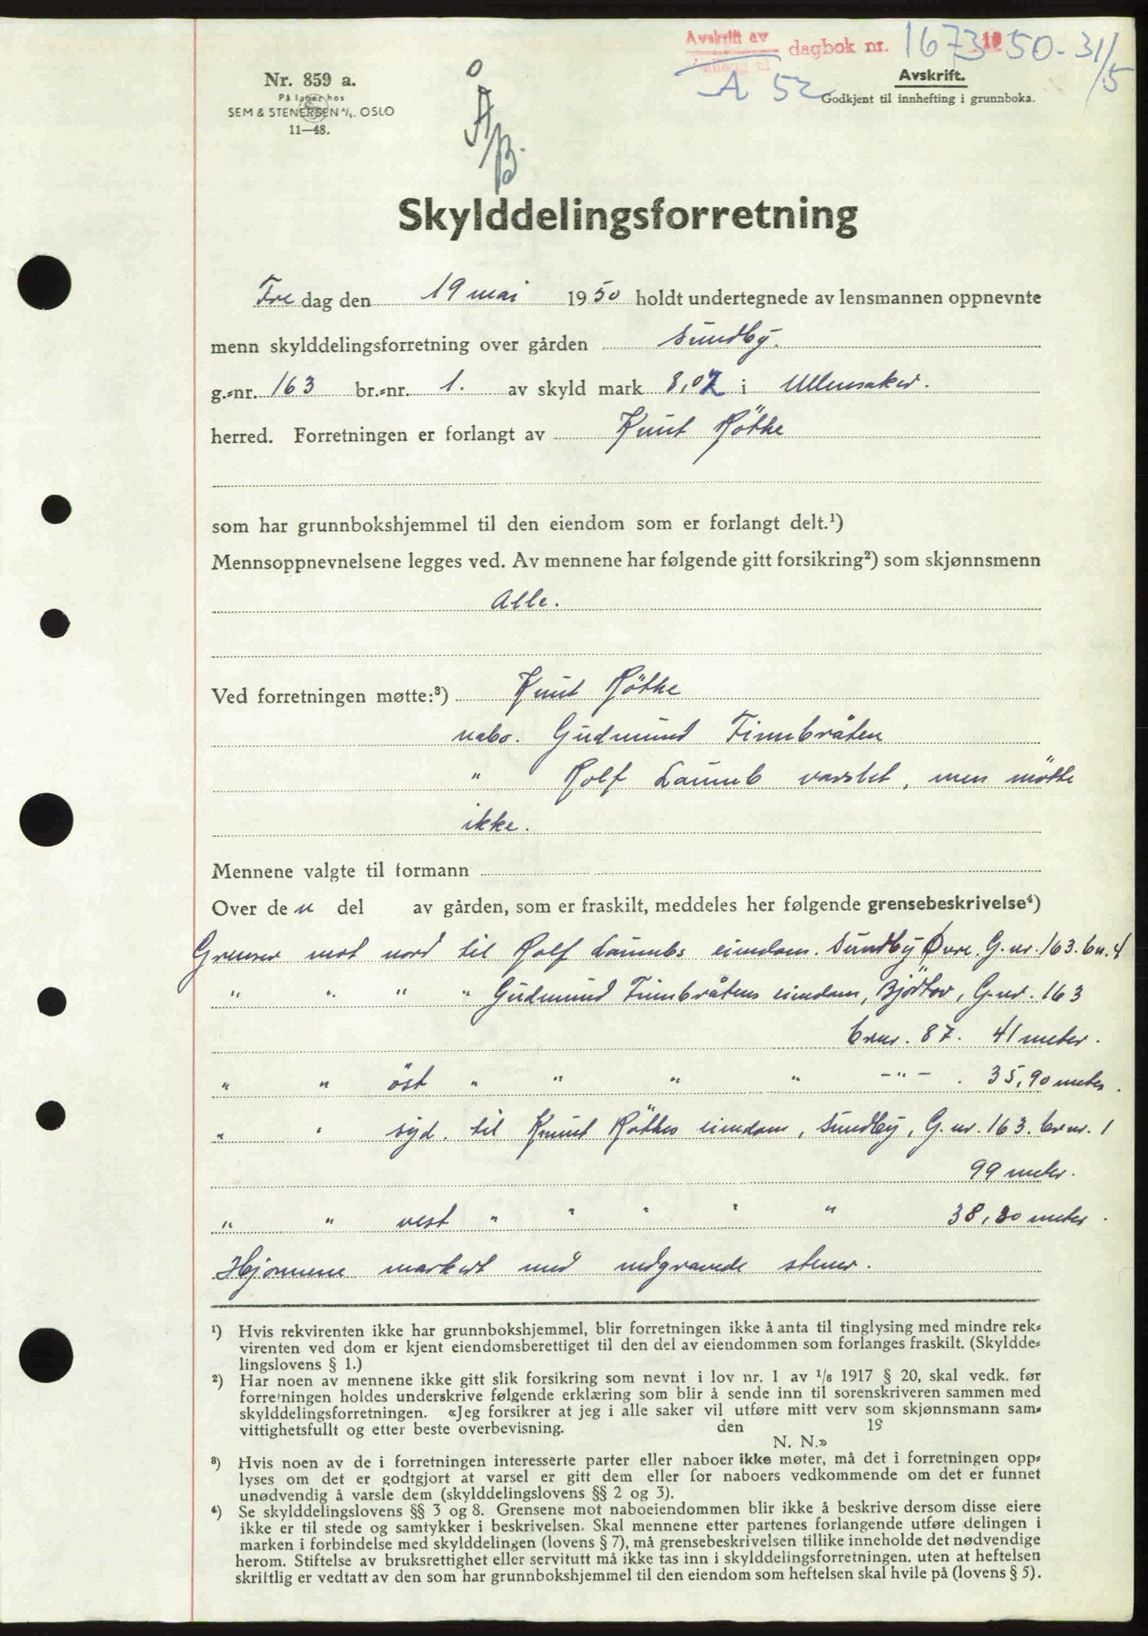 Avskrift av dagbok nr. 1673 1950-31/5
A 52
Avskrift.
Godkjent til innhefting i grunnboka.
Nr. 859 a.
På lager hos
SEM & STENERSEN A/S. OSLO
11—48.
Å/B.
Skylddelingsforretning
Fre dag den 19 mai 1950 holdt undertegnede av lensmannen oppnevnte
menn skylddelingsforretning over gården Sundby.
g.-nr. 163 br.-nr. 1. av skyld mark 8,07 i Ullensaker.
herred. Forretningen er forlangt av Knut Röthe
som har grunnbokshjemmel til den eiendom som er forlangt delt.¹)
Mennsoppnevnelsene legges ved. Av mennene har følgende gitt forsikring²) som skjønnsmenn
Alle.
Ved forretningen møtte:³) Knut Röthe
nabo. Gudmund Finnbråten
" Rolf Laumb varslet, men mötte
ikke.
Mennene valgte til formann
Over den del av gården, som er fraskilt, meddeles her følgende grensebeskrivelse⁴)
Grenser mot nord til Rolf Laumbs eiendom. Sundby Øvre. G.nr. 163. bn. 4
" " " " Gudmund Finnbråtens eiendom, Bjöltov, G.nr. 163
brnr. 87. 41 meter.
" " öst " " " " -"- . 35,90 meter.
" " syd. til Knut Röthes eiendom, Sundby, G.nr. 163. brnr. 1
99 meter.
" " vest " " " " " 38,80 meter.
Hjörnene markert med nedgravede stener.
¹) Hvis rekvirenten ikke har grunnbokshjemmel, blir forretningen ikke å anta til tinglysing med mindre rek-
virenten ved dom er kjent eiendomsberettiget til den del av eiendommen som forlanges fraskilt. (Skyldde-
lingslovens § 1.)
²) Har noen av mennene ikke gitt slik forsikring som nevnt i lov nr. 1 av ¹/₆ 1917 § 20, skal vedk. før
forretningen holdes underskrive følgende erklæring som blir å sende inn til sorenskriveren sammen med
skylddelingsforretningen. «Jeg forsikrer at jeg i alle saker vil utføre mitt verv som skjønnsmann sam-
vittighetsfullt og etter beste overbevisning. den 19
N. N.»
³) Hvis noen av de i forretningen interesserte parter eller naboer ikke møter, må det i forretningen opp-
lyses om det er godtgjort at varsel er gitt dem eller for naboers vedkommende om det er funnet
unødvendig å varsle dem (skylddelingslovens §§ 2 og 3).
⁴) Se skylddelingslovens §§ 3 og 8. Grensene mot naboeiendommen blir ikke å beskrive dersom disse eiere
ikke er til stede og samtykker i beskrivelsen. Skal mennene etter partenes forlangende utføre delingen i
marken i forbindelse med skylddelingen (lovens § 7), må grensebeskrivelsen tillike inneholde det nødvendige
herom. Stiftelse av bruksrettighet eller servitutt må ikke tas inn i skylddelingsforretningen. uten at heftelsen
skriftlig er vedtatt av den som har grunnbokshjemmel til den eiendom som heftelsen skal hvile på (lovens § 5).